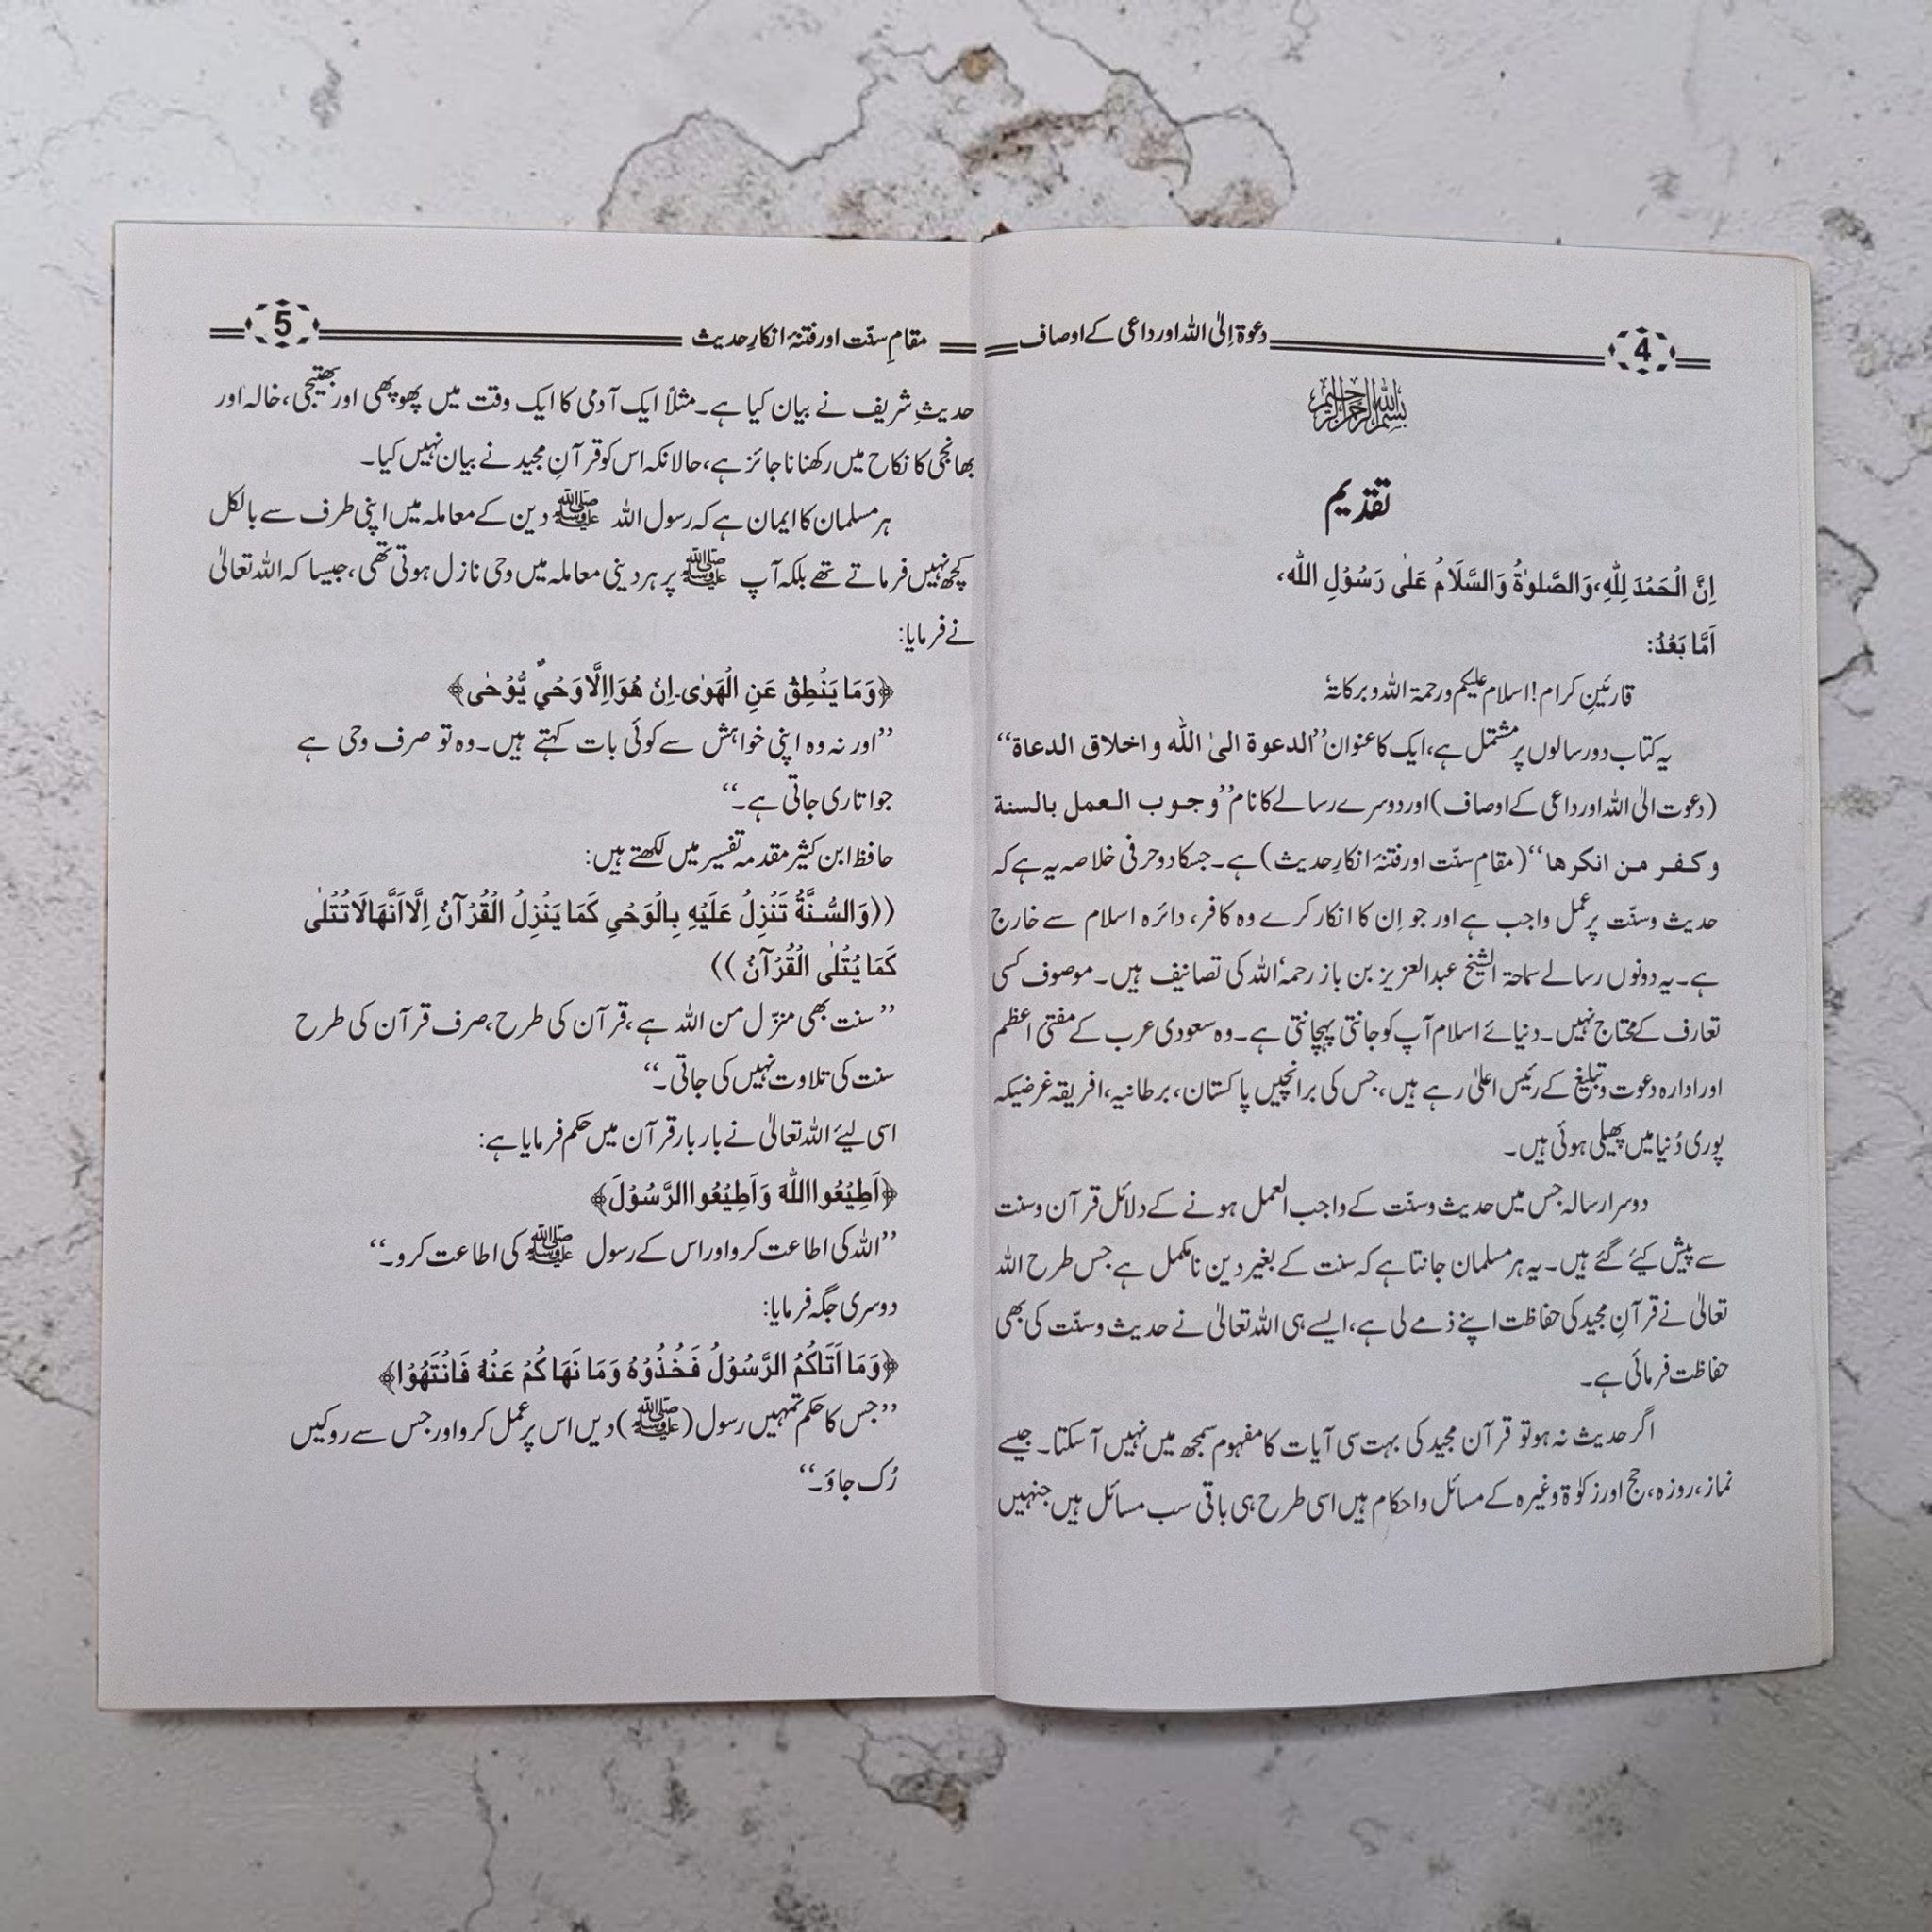 دعوۃ اِلیٰ اللہ اور داعی کے اوصاف
4
بسم اللہ الرحمن الرحیم
تقدیم
اِنَّ الْحَمْدَ لِلّٰهِ، وَالصَّلوٰةُ وَالسَّلَامُ عَلٰى رَسُوْلِ اللّٰه،
اَمَّا بَعْدُ:
قارئینِ کرام! اسلام علیکم ورحمۃ اللہ وبرکاتہٗ
یہ کتاب دو رسالوں پر مشتمل ہے، ایک کا عنوان ’’الدعوة الىٰ الله واخلاق الدعاة‘‘
(دعوت الیٰ اللہ اور داعی کے اوصاف) اور دوسرے رسالے کا نام ’’وجوب العمل بالسنة
وكفر من انكرها‘‘ (مقامِ سنّت اور فتنۂ انکارِ حدیث) ہے۔ جسکا دو حرفی خلاصہ یہ ہے کہ
حدیث وسنّت پر عمل واجب ہے اور جو اِن کا انکار کرے وہ کافر، دائرہ اسلام سے خارج
ہے۔ یہ دونوں رسالے سماحۃ الشیخ عبدالعزیز بن باز رحمہٗ اللہ کی تصانیف ہیں۔ موصوف کسی
تعارف کے محتاج نہیں۔ دنیائے اسلام آپ کو جانتی پہچانتی ہے۔ وہ سعودی عرب کے مفتیٔ اعظم
اور ادارہ دعوت وتبلیغ کے رئیس اعلیٰ رہے ہیں، جس کی برانچیں پاکستان، برطانیہ، افریقہ غرضیکہ
پوری دُنیا میں پھیلی ہوئی ہیں۔
دوسرا رسالہ جس میں حدیث وسنّت کے واجب العمل ہونے کے دلائل قرآن وسنت
سے پیش کیئے گئے ہیں۔ یہ ہر مسلمان جانتا ہے کہ سنت کے بغیر دین نامکمل ہے جس طرح اللہ
تعالیٰ نے قرآنِ مجید کی حفاظت اپنے ذمے لی ہے، ایسے ہی اللہ تعالیٰ نے حدیث وسنّت کی بھی
حفاظت فرمائی ہے۔
اگر حدیث نہ ہو تو قرآن مجید کی بہت سی آیات کا مفہوم سمجھ میں نہیں آسکتا۔ جیسے
نماز، روزہ، حج اور زکوٰۃ وغیرہ کے مسائل واحکام ہیں اسی طرح ہی باقی سب مسائل ہیں جنہیں
مقامِ سنّت اور فتنۂ انکارِ حدیث
5
حدیثِ شریف نے بیان کیا ہے۔ مثلاً ایک آدمی کا ایک وقت میں پھوپھی اور بھتیجی، خالہ اور
بھانجی کا نکاح میں رکھنا ناجائز ہے، حالانکہ اس کو قرآنِ مجید نے بیان نہیں کیا۔
ہر مسلمان کا ایمان ہے کہ رسول اللہ ﷺ دین کے معاملہ میں اپنی طرف سے بالکل
کچھ نہیں فرماتے تھے بلکہ آپ ﷺ پر ہر دینی معاملہ میں وحی نازل ہوتی تھی، جیسا کہ اللہ تعالیٰ
نے فرمایا:
﴿وَمَا يَنْطِقُ عَنِ الْهَوٰى۔اِنْ هُوَ اِلَّا وَحْيٌ يُّوْحٰى﴾
’’اور نہ وہ اپنی خواہش سے کوئی بات کہتے ہیں۔ وہ تو صرف وحی ہے
جو اتاری جاتی ہے۔‘‘
حافظ ابن کثیر مقدمہ تفسیر میں لکھتے ہیں:
((وَالسُّنَّةُ تَنْزِلُ عَلَيْهِ بِالْوَحْيِ كَمَا يَنْزِلُ الْقُرْآنُ اِلَّا اَنَّهَا لَا تُتْلٰى
كَمَا يُتْلٰى الْقُرْآنُ))
’’سنت بھی منزّل من اللہ ہے، قرآن کی طرح، صرف قرآن کی طرح
سنت کی تلاوت نہیں کی جاتی۔‘‘
اسی لیئے اللہ تعالیٰ نے بار بار قرآن میں حکم فرمایا ہے:
﴿اَطِيْعُوا اللّٰهَ وَاَطِيْعُوا الرَّسُوْلَ﴾
’’اللہ کی اطاعت کرو اور اس کے رسول ﷺ کی اطاعت کرو۔‘‘
دوسری جگہ فرمایا:
﴿وَمَا اَتَاكُمُ الرَّسُوْلُ فَخُذُوْهُ وَمَا نَهَاكُمْ عَنْهُ فَانْتَهُوْا﴾
’’جس کا حکم تمہیں رسول (ﷺ) دیں اس پر عمل کرو اور جس سے روکیں
رُک جاؤ۔‘‘